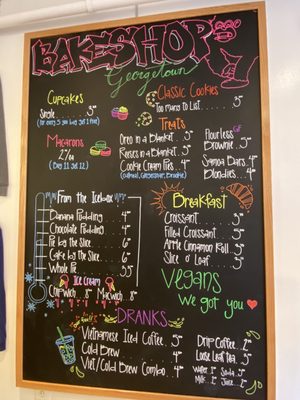 BAKESHOP
Georgetown
Cupcakes
Single 3
(for every 5 you buy get 1 free)
Macarons
2.75 ea
(Buy 11, get 12)
Classic Cookies
Too Many to List 3
Treats
Oreo in a Blanket 3
Reeses in a Blanket 3
Cookie Cream Pies 4
Flourless GF
Brownie 3
Samoa Bars 4
Blondies 3
From the Icebox
Banana Pudding 4
Chocolate Pudding 4
Pie by the Slice 6
Cake by the Slice 6
Whole Pie 35
Ice Cream
Chipwich 8 Macwich 8
Breakfast
Croissant 3
Filled Croissant 5
Apple Cinnamon Roll 5
Slice o' Loaf 3
Vegans
We got you
DRANKS
Vietnamese Iced Coffee 5
Cold Brew 4
Viet/Cold Brew Combo 4
Drip Coffee 2
Loose Leaf Tea 3
Water 1 Soda 2
Milk 2 Juice 2